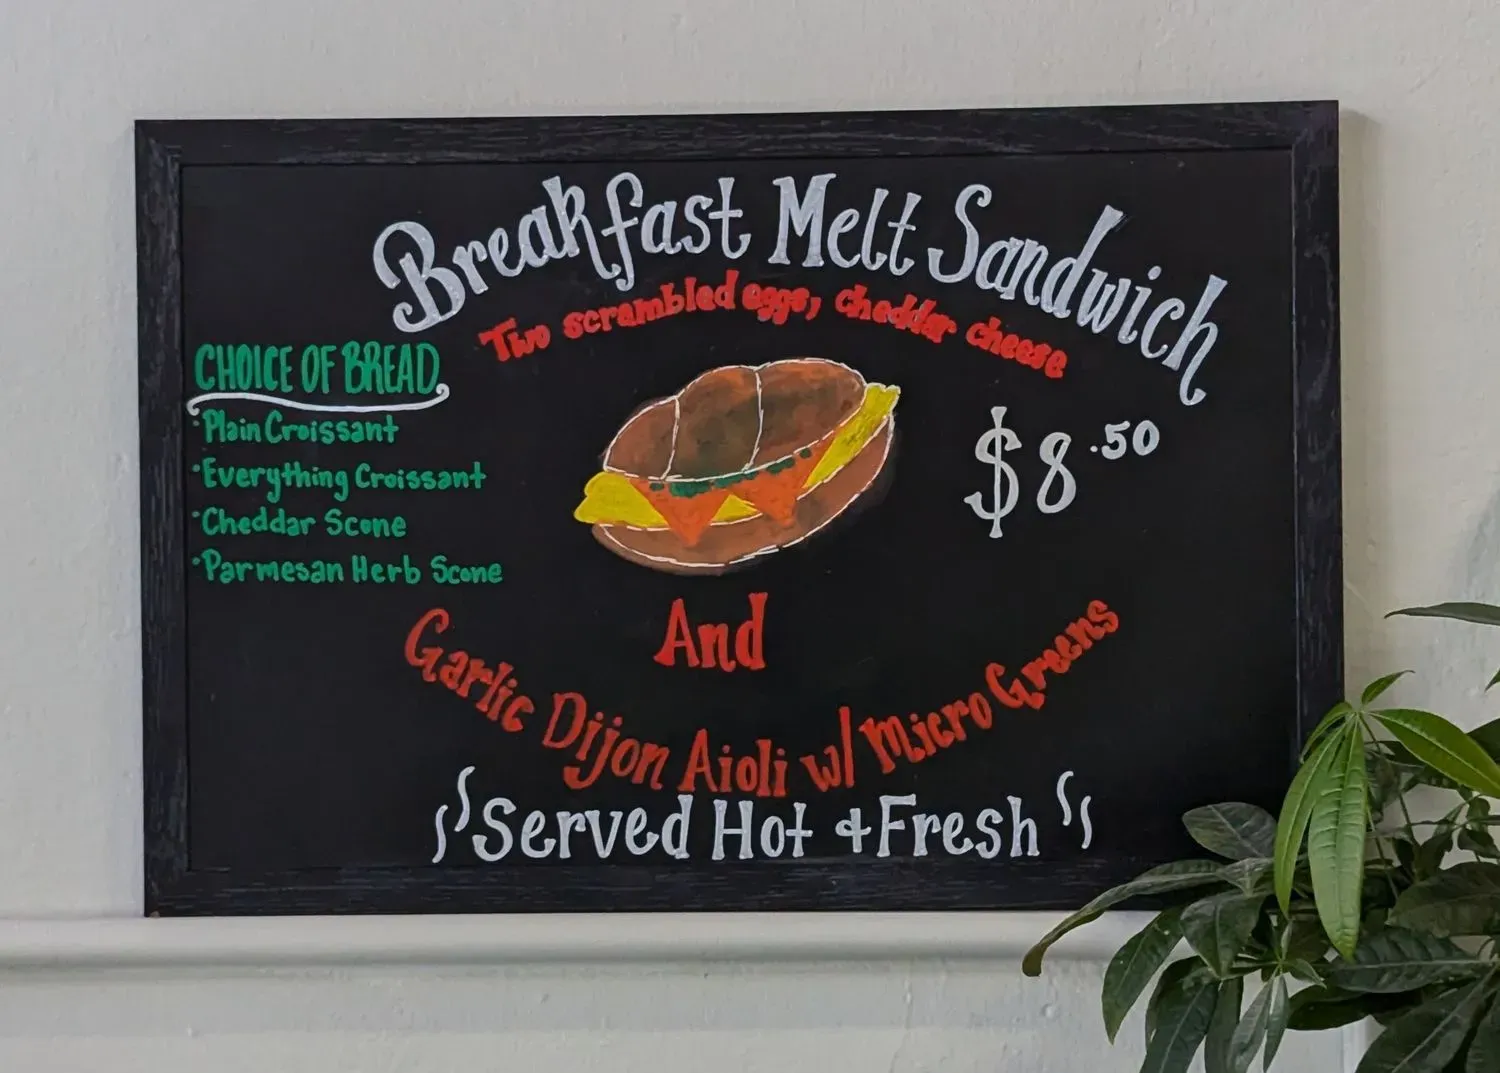 Breakfast Melt Sandwich
Two scrambled eggs, cheddar cheese
CHOICE OF BREAD
·Plain Croissant
·Everything Croissant
·Cheddar Scone
·Parmesan Herb Scone
$8.50
And
Garlic Dijon Aioli w/ Micro Greens
Served Hot & Fresh